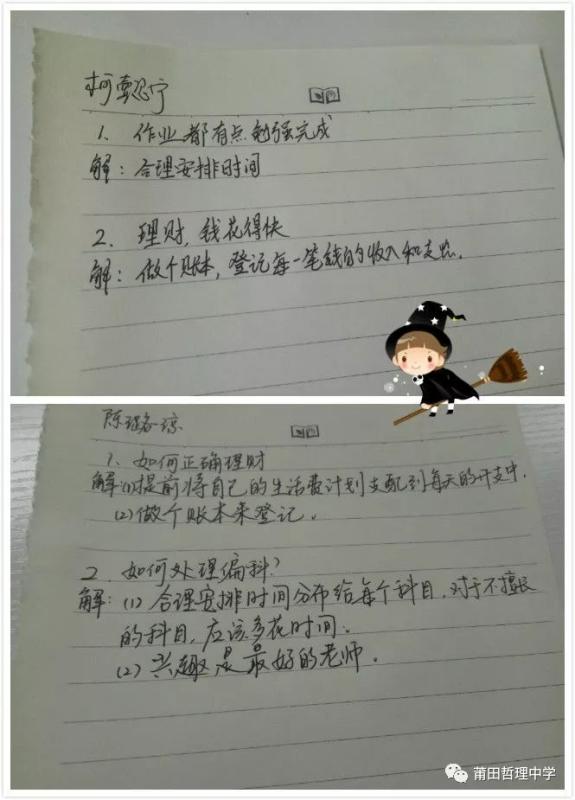 柯
宁
1、作业都有点勉强完成
解：合理安排时间
2、理财，钱花得快
解：做个账本，登记每一笔钱的收入和支出.
陈璐琼
1、如何正确理财
解(1)提前将自己的生活费计划支配到每天的开支中.
(2)做个账本来登记。
2、如何处理偏科?
解：(1)合理安排时间分布给每个科目，对于不擅长
的科目，应该多花时间.
(2)兴趣是最好的老师.
莆田哲理中学